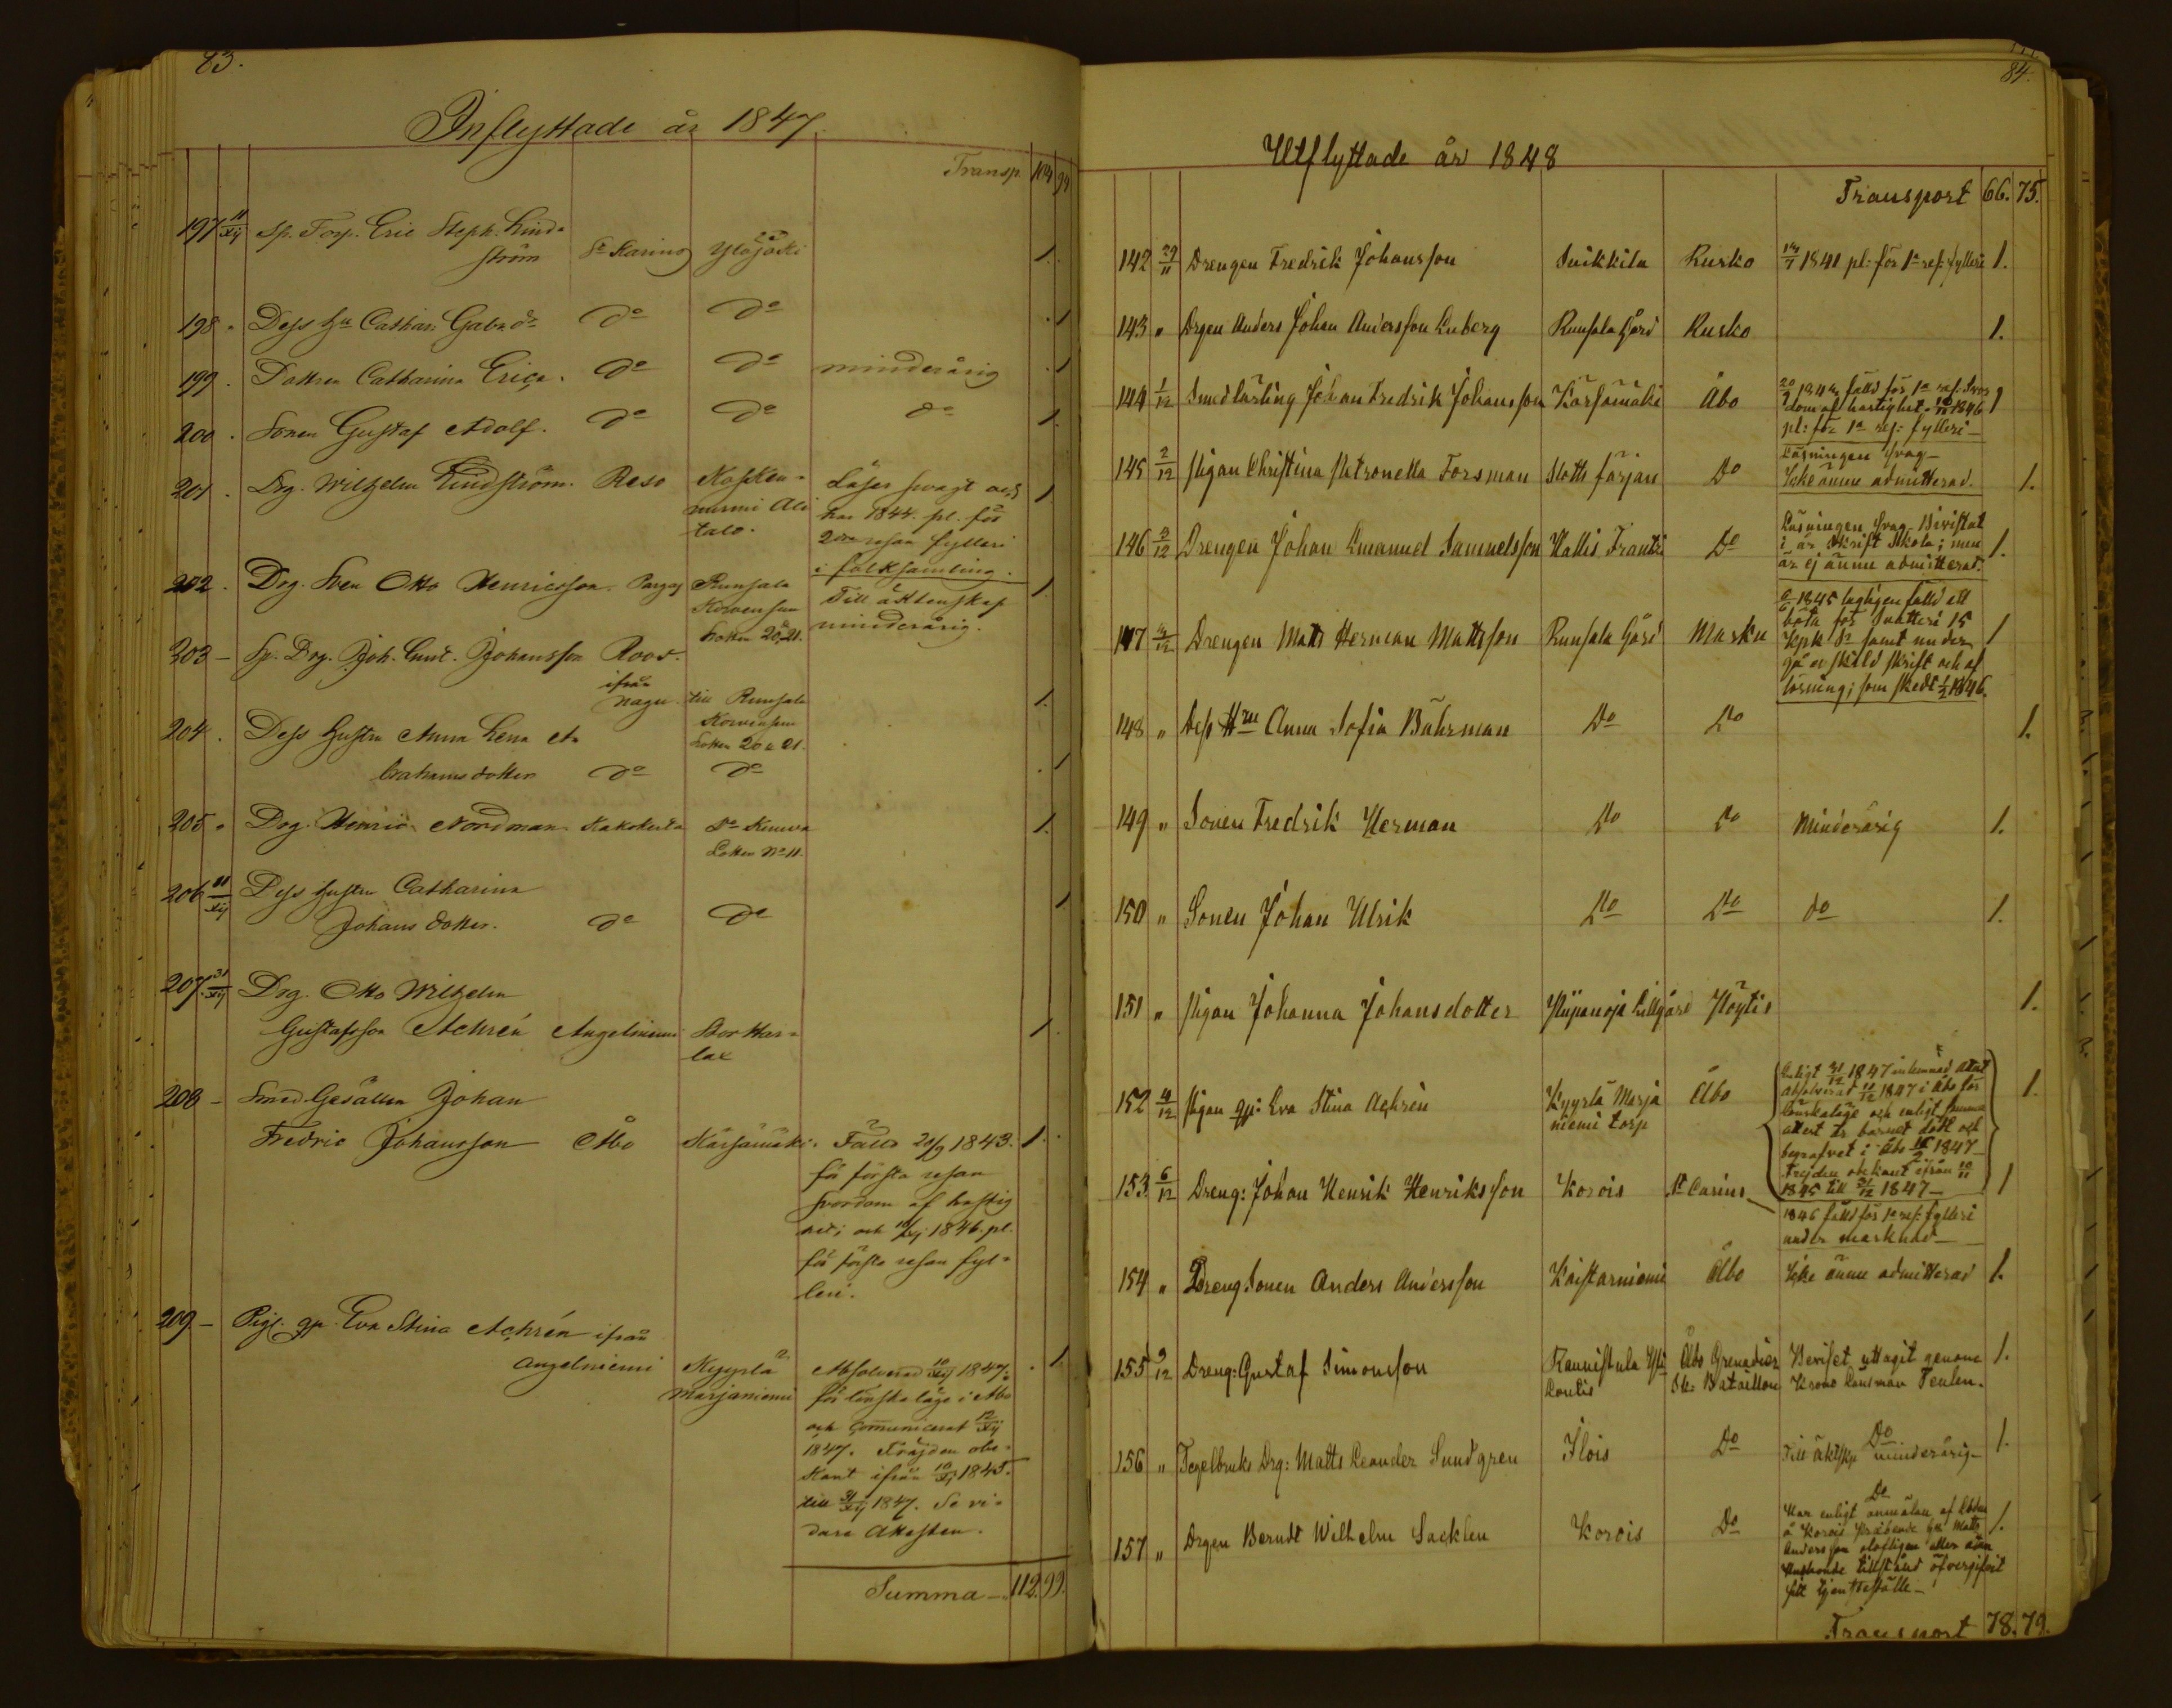 83.
Inflyttade år 1847.
Transp. 104 94
197 11/xij Sp. Torp. Eric Steph. Lind-
ström St Karins Ylöjoki 1.
198 " Dess hu Cathar: Gab:dr do do .1
199 . Dottren Catharina Erica. do do minderårig .1
200 . Sonen Gustaf Adolf. do do do 1.
201 . Drg. Wilhelm Lindström. Reso Kosken- Läser svagt och 1.
nurmi Ali har 1844. pl. för
talo. 2dra resan fylleri
i folksamling.
202 . Drg. Sven Otto Henricsson. Pargas Runsala Till äktenskap 1
Korvensun minderårig.
Lotten 20,21.
203 – Sp. Drg. Joh. Gust. Johansson
ifrån
Nagu. till Runsala 1.
Korvensun
Lotten 20 & 21.
204 . Dess hustru Anna Lena A-
brahamsdotter do do .1
205 " Drg. Henric Nordman Kakskerta 1.
Lotten No 11.
206 11/xij Dess hustru Catharina 1
Johansdotter. do do
207. 31/xij Drg. Otto Wilhelm
Gustafsson Achrén Angelniemi Stor Her- 1.
lax
208 – Smed Gesällen Johan
Fredric Johansson Åbo Kärsämäki. Fälld 20/9 1843. 1.
för första resan
svordom af hastig
het; och 10/xij 1846. pl.
för första resan fyl-
leri.
209 – Pig. qp. Eva Stina Achrén ifrån
Angelniemi Kyyrlä Absolverad 10/xij 1847. .1
Marjaniemi för lönskaläge i Åbo
och Communicerat 12/xij
1847. Fräjden obe-
kant ifrån 10/xj 1845.
till 31/xij 1847. Se vi-
dare Attesten.
Summa – 112. 99.
84.
Utflyttade år 1848
Transport 66. 75.
142 29/11 Drengen Fredrik Johansson Suikkila Rusko 1841 pl: för 1a res: fylleri 1.
143 " Drgen Anders Johan Andersson Enberg Runsala Gård Rusko 1.
144 1/12 Smedlärling Johan Fredrik Johansson Kärsämäki Åbo fälld för 1a res: svor 1
dom af hastighet. 10/12 1846
pl: för 1a res: fylleri –
145 2/12 Pigan Christina Petronella Forsman Slotts färjan Do Läsningen svag –
Icke ännu admitterad. 1.
146 3/12 Drengen Johan Emanuel Samuelsson Hallis Frantsi Do Läsningen svag. Bivistat
i år Skrift Skola; men 1.
är ej ännu admitterad.
147 4/12 Drengen Matts Herman Mattsson Runsala Gård Masku 1845 lagligen fälld att
böta för 15 1
samt under
gå enskild skrift och af
lösning; som skedt 1/2 1846.
148 " Dess Hru Anna Sofia Bührman Do Do 1.
149 " Sonen Fredrik Herman Do Do Minderårig 1.
150 " Sonen Johan Ulrik Do Do do 1.
151 " Pigan Johanna Johansdotter Lillgård Pöytis 1.
152 4/12 Pigan qp: Eva Stina Achrén Kyyrlä Marja Åbo 1.
niemi torp
Enligt 31/12 1847 inlemnad Attest
absolverat 10/12 1847 i Åbo för
lönskaläge och enligt samma
attest är barnet dödt och
begrafvet i Åbo 1847 –
Frejden obekant ifrån 10/11
1845 till 31/12 1847 –
153 6/12 Dreng: Johan Henrik Henriksson Korois St Carins 1
1846 fälld för 1a res: fylleri
under marknad –
154 " Dreng Sonen Anders Andersson Kaistarniemi Åbo Icke ännu admitterad 1.
155 9/12 Dreng: Gustaf Simonsson Raunistula Åbo Grenadier Beviset uttagit genom 1.
Sk: Bataillon Krono Länsman
156 " Tegelbruks Drg: Matts Leander Sundgren Ilois Do Do 1.
Till äktskp minderårig –
157 " Drgen Berndt Wilhelm Sacklen Korois Do Do
Har enligt anmälan af 1.
å Korois Matts
Andersson olofligen
tillstånd öfvergifvit
sitt tjensteställe –
Transport 78. 79.